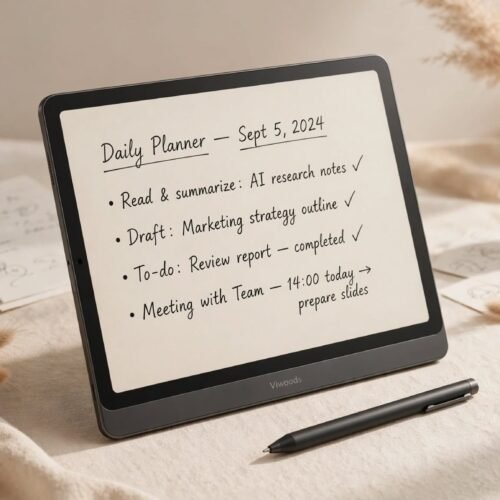 Daily Planner — Sept 5, 2024
• Read & summarize: AI research notes ✓
• Draft: Marketing strategy outline ✓
• To-do: Review report — completed ✓
• Meeting with Team — 14:00 today →
prepare slides
Viwoods